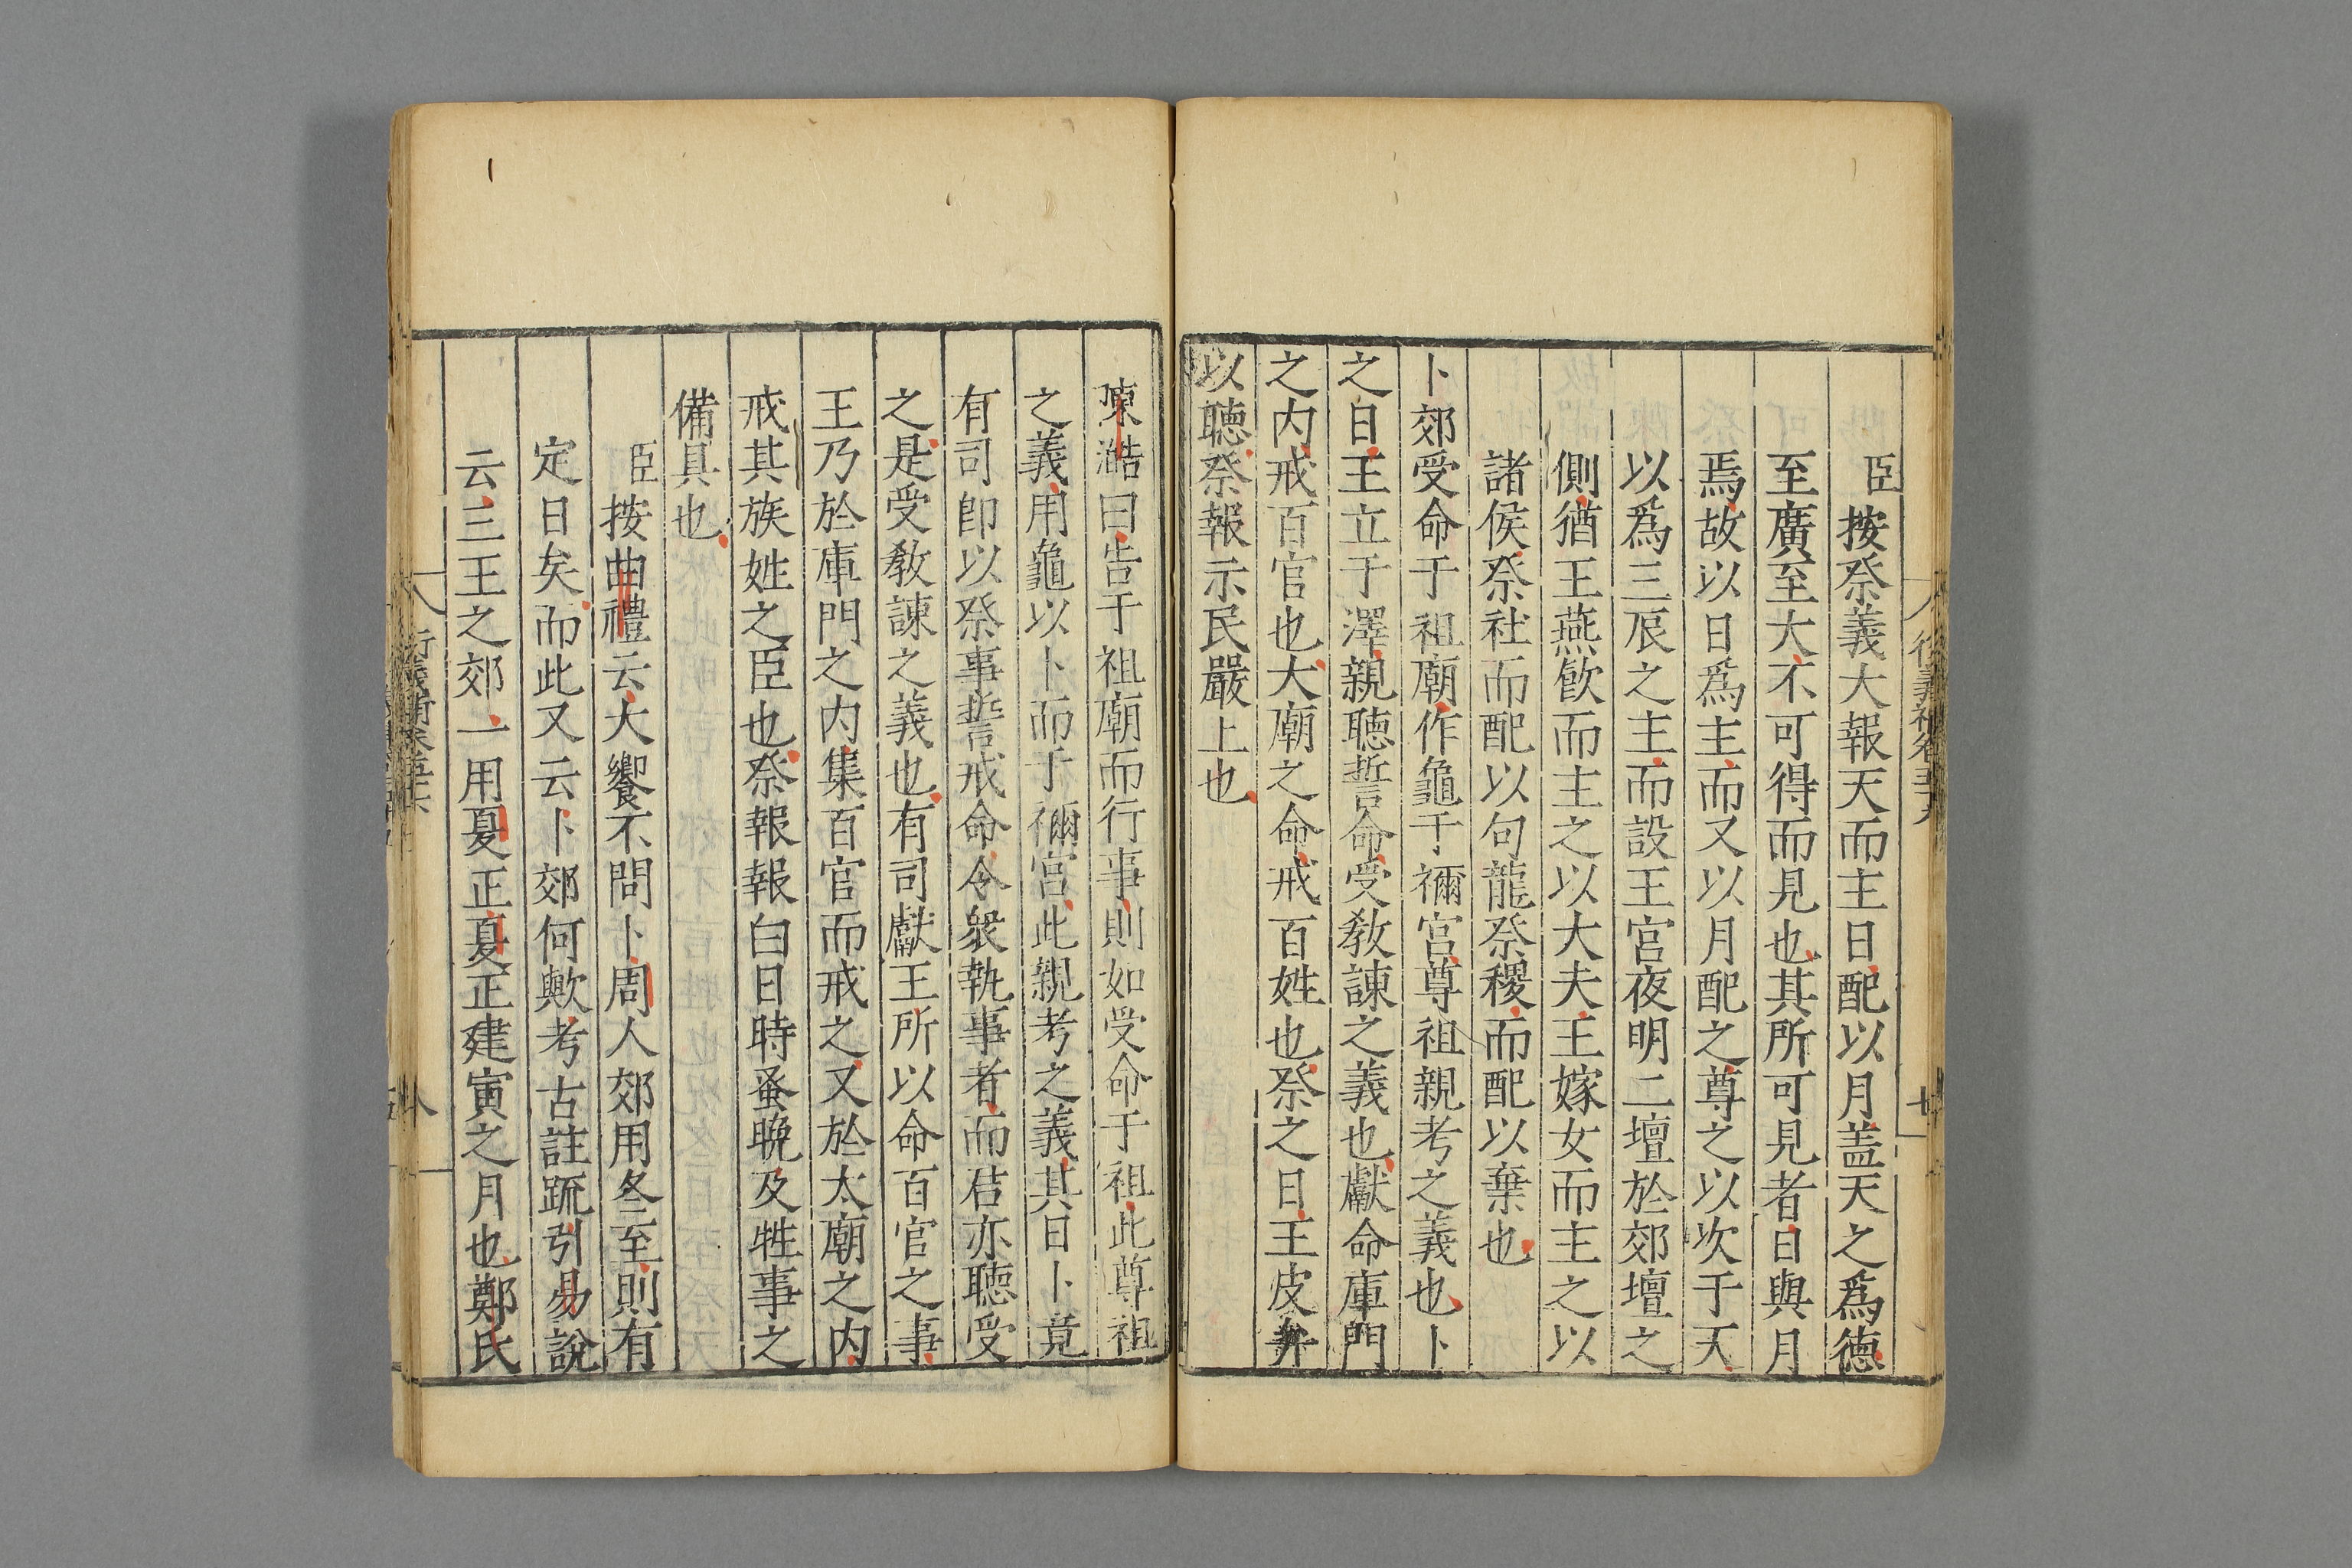 臣按祭義大報天而主日配以月盖天之爲德
至廣至大不可得而見也其所可見者日與月
焉故以日爲主而又以月配之尊之以次于天
以爲三辰之主而設王宮夜明二壇於郊壇之
側猶王燕飮而主之以大夫王嫁女而主之以
諸侯祭社而配以句龍祭稷而配以棄也
卜郊受命于祖廟作龜于禰宮尊祖親考之義也卜
之日王立于澤親聽誓命受敎諫之義也獻命庫門
之内戒百官也大廟之命戒百姓也祭之日王皮弁
以聽祭報示民嚴上也
陳澔曰告于祖廟而行事則如受命于祖此尊祖
之義用龜以卜而于禰宮此親考之義其日卜竟
有司卽以祭事誓戒命令衆執事者而君亦聽受
之是受敎諫之義也有司獻王所以命百官之事
王乃於庫門之内集百官而戒之又於太廟之内
戒其族姓之臣也祭報報白日時蚤晚及牲事之
備具也
臣按曲禮云大饗不問卜周人郊用冬至則有
定日矣而此又云卜郊何歟考古註疏引易說
云三王之郊一用夏正夏正建寅之月也鄭氏